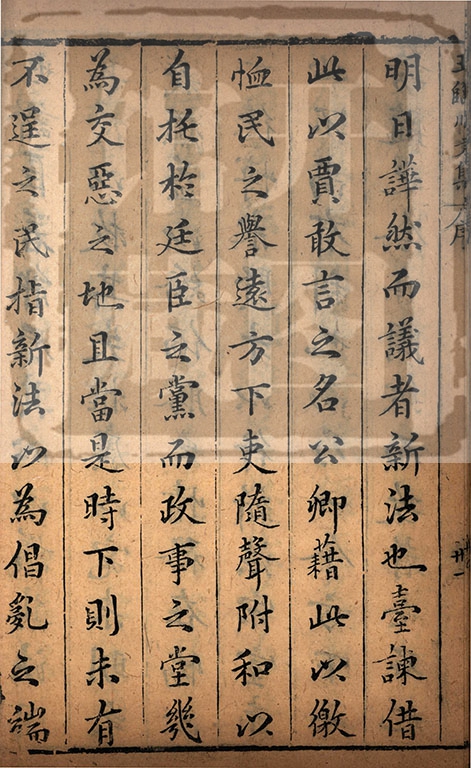 明日譁然而議者新法也臺諫借
此以賈敢言之名公卿藉此以徼
恤民之譽遠方下吏隨聲附和以
自托於廷臣之黨而政事之堂幾
為交惡之地且當是時下則未有
不逞之民指新法以為倡亂之端